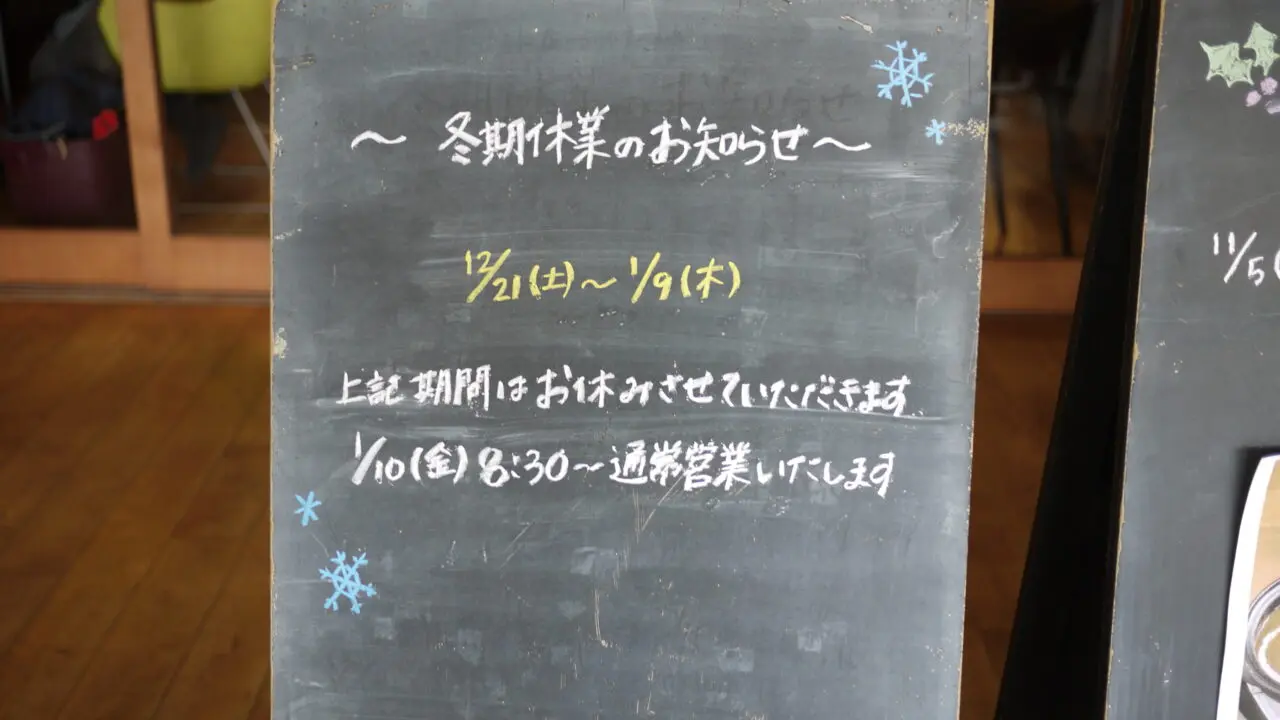 ～ 冬期休業のお知らせ～
12/21(土)～1/9(木)
上記期間はお休みさせていただきます
1/10(金)8:30～通常営業いたします
11/5(